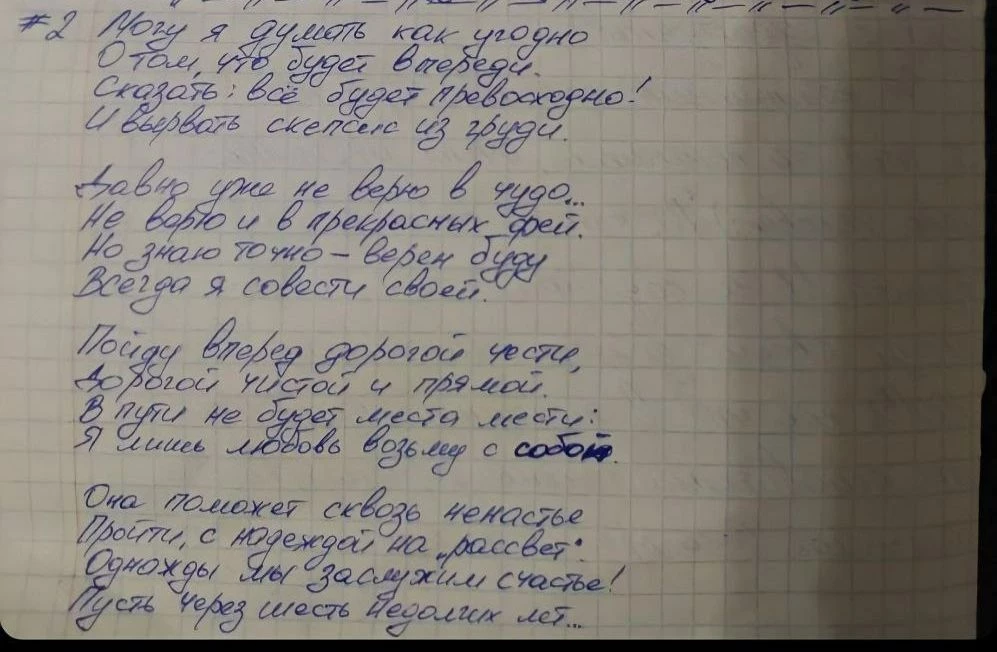 #2 Могу я думать как угодно
О том, что будет впереди.
Сказать: всё будет превосходно!
И вырвать скепсис из груди.
Давно уже не верю в чудо...
Не верю и в прекрасных фей.
Но знаю точно - верен буду
Всегда я совести своей.
Пойду вперед дорогой чести,
Дорогой чистой и прямой.
В пути не будет места мести:
Я лишь любовь возьму с собой.
Она поможет сквозь ненастье
Пройти, с надеждой на „рассвет".
Однажды мы заслужим счастье!
Пусть через шесть недолгих лет...